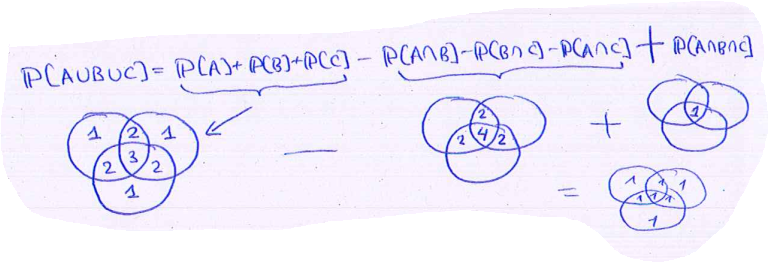 P[A∪B∪C] = P[A] + P[B] + P[C] - P[A∩B] - P[B∩C] - P[A∩C] + P[A∩B∩C]
1 2 1
3
2 2
1
-
2
4
2 2
+
1
=
1 1 1
1 1 1
1